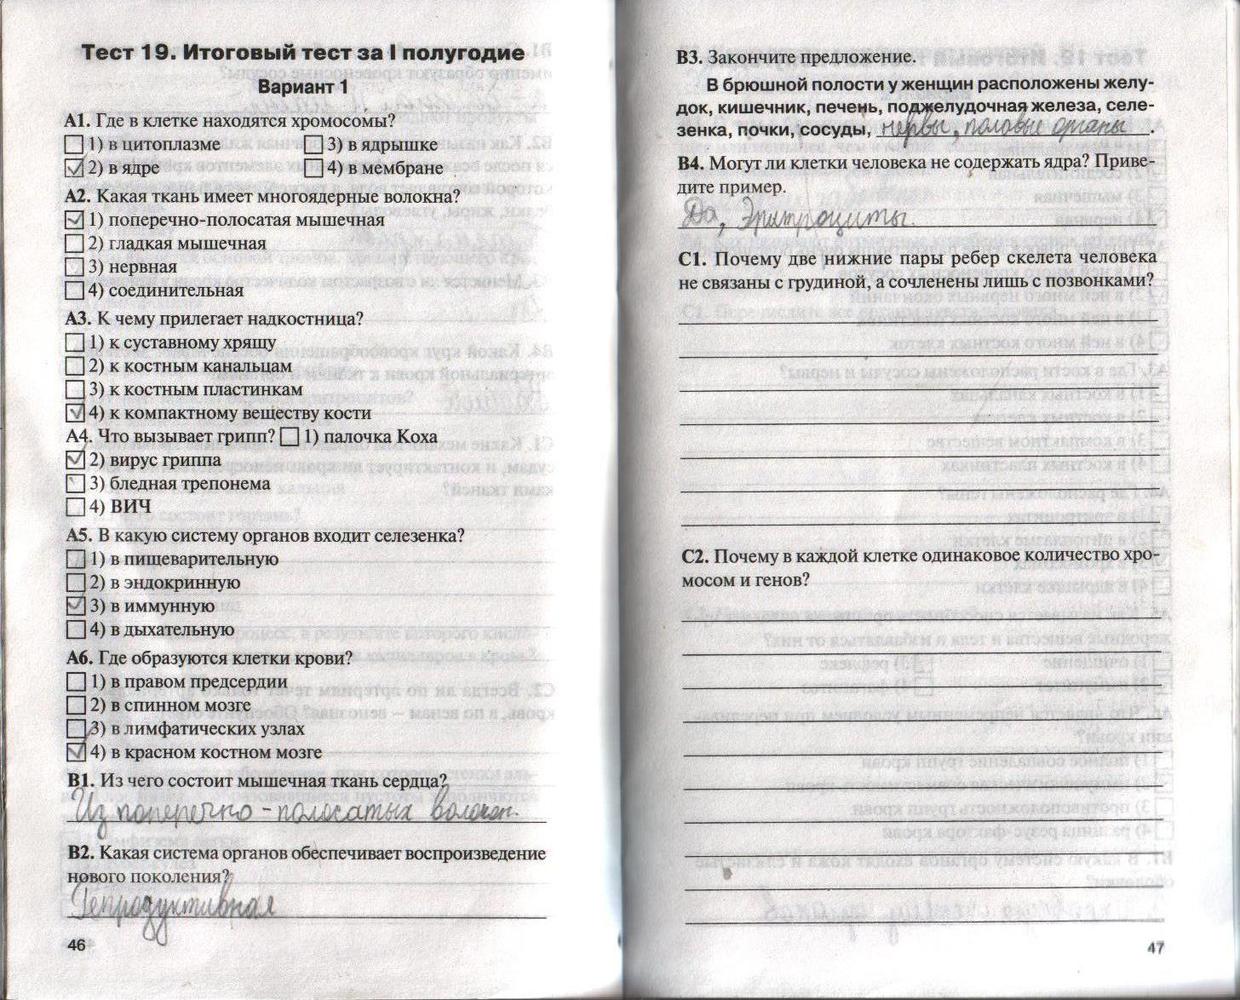 Тест 19. Итоговый тест за I полугодие
Вариант 1
А1. Где в клетке находятся хромосомы?
1) в цитоплазме 3) в ядрышке
2) в ядре 4) в мембране
А2. Какая ткань имеет многоядерные волокна?
1) поперечно-полосатая мышечная
2) гладкая мышечная
3) нервная
4) соединительная
А3. К чему прилегает надкостница?
1) к суставному хрящу
2) к костным канальцам
3) к костным пластинкам
4) к компактному веществу кости
А4. Что вызывает грипп? 1) палочка Коха
2) вирус гриппа
3) бледная трепонема
4) ВИЧ
А5. В какую систему органов входит селезенка?
1) в пищеварительную
2) в эндокринную
3) в иммунную
4) в дыхательную
А6. Где образуются клетки крови?
1) в правом предсердии
2) в спинном мозге
3) в лимфатических узлах
4) в красном костном мозге
В1. Из чего состоит мышечная ткань сердца?
Из поперечно-полосатых волокон.
В2. Какая система органов обеспечивает воспроизведение
нового поколения?
Репродуктивная
46
В3. Закончите предложение.
В брюшной полости у женщин расположены желу-
док, кишечник, печень, поджелудочная железа, селе-
зенка, почки, сосуды, нервы, половые органы.
В4. Могут ли клетки человека не содержать ядра? Приве-
дите пример.
Да, Эритроциты.
С1. Почему две нижние пары ребер скелета человека
не связаны с грудиной, а сочленены лишь с позвонками?
С2. Почему в каждой клетке одинаковое количество хро-
мосом и генов?
47